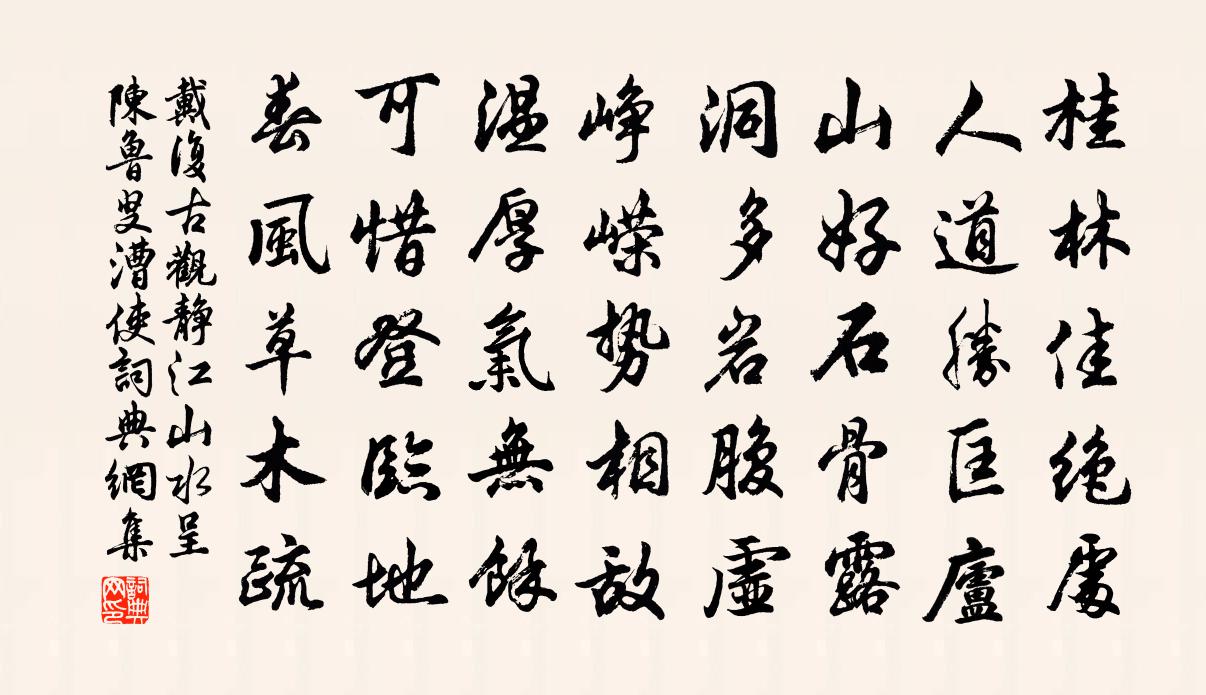 桂林佳絶處
人道勝匡廬
山好石骨露
洞多岩腹虛
峥嶸势相敌
温厚氣無餘
可惜登臨地
春風草木疏
戴復古觀静江山水呈
陳魯叟漕使詞典網集
詞典网印